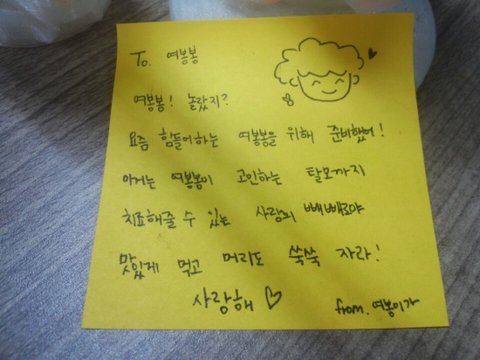 To. 여봉봉
여봉봉! 놀랐지?
요즘 힘들어하는 여봉봉을 위해 준비했어!
이거는 여봉봉이 고민하는 탈모까지
치료해줄 수 있는 사랑의 빼빼로야
맛있게 먹고 머리도 쑥쑥 자라!
사랑해♡
from. 여봉이가